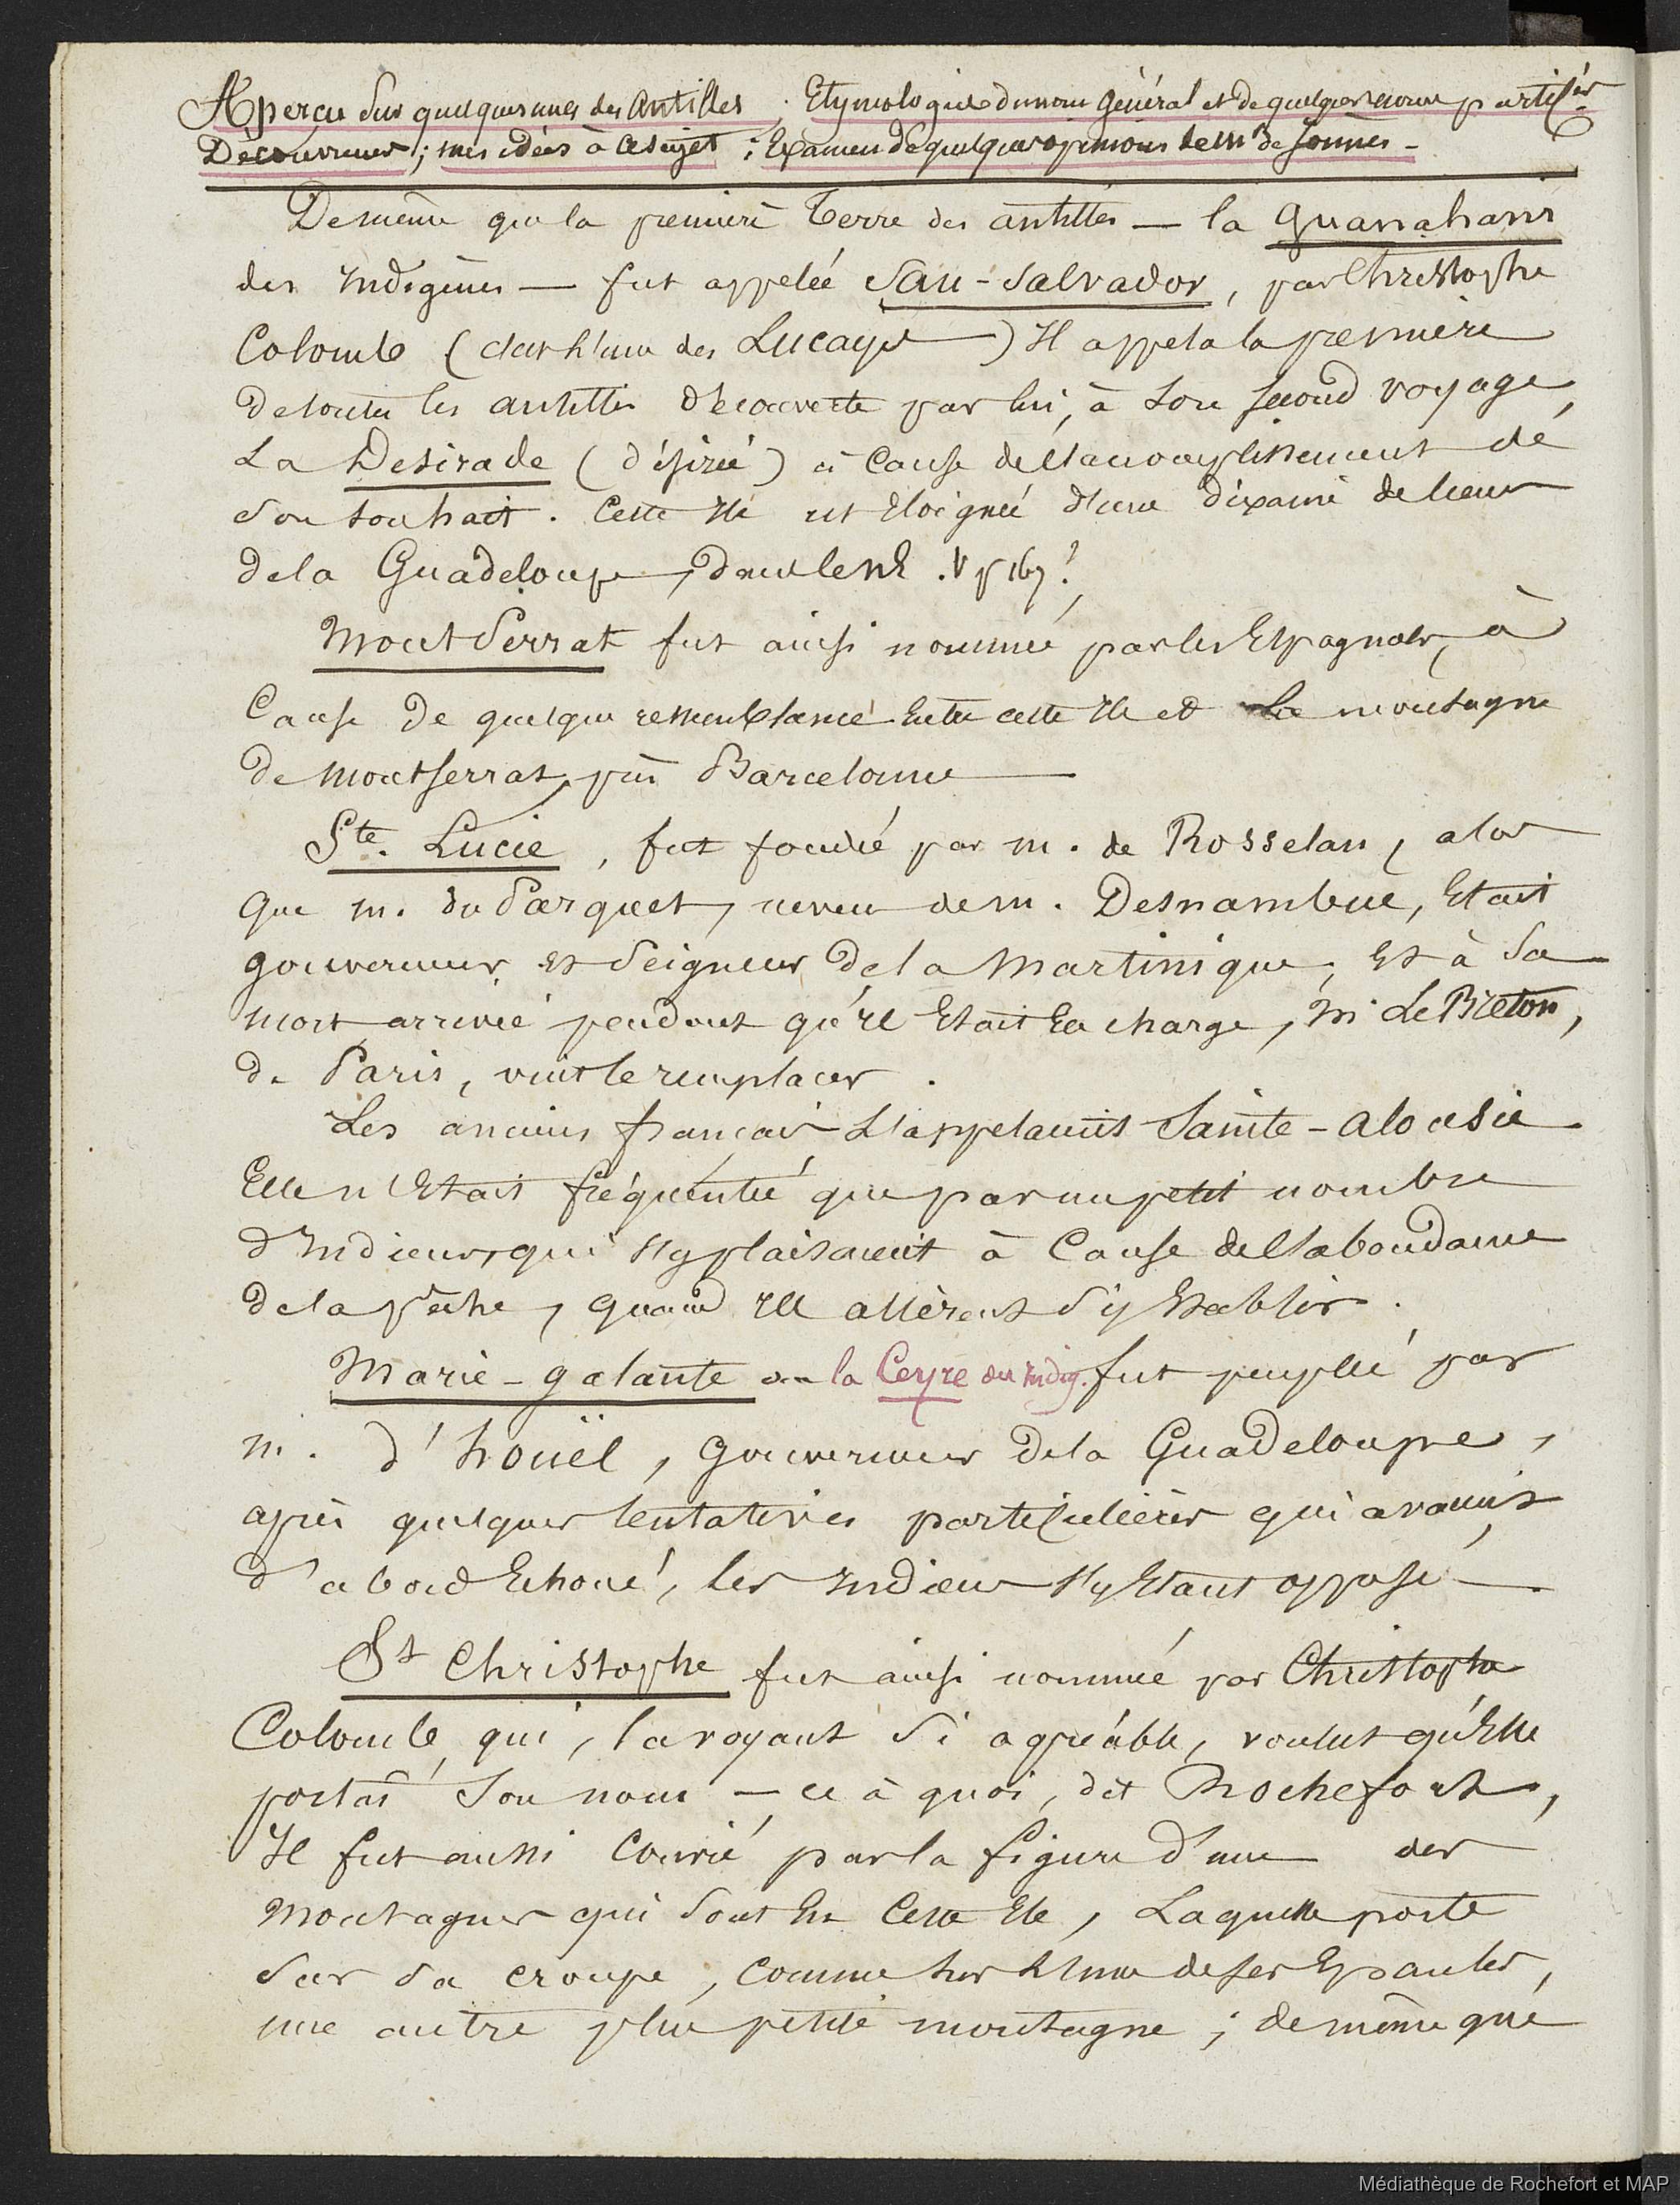 Aperçu sur quelques unes des Antilles. Etymologie du nom Général et de quelques noms particers
Découvreurs ; mes idées à ce sujet ; Examen de quelques opinions de Mr de Jonnes -
De même que la première Terre des antilles — la Guanahani
des Indigènes — fut appelée San-Salvador, par Christophe
Colomb (c'est l'une des Lucayes —) Il appela la première
de toutes les antilles découverte par lui, à son second voyage,
La Desirade (désirée) à cause de l'accomplissement de
son souhait. Cette Ile est Eloignée d'une dixaine de lieues
de la Guadeloupe, dans le N E. V p 167 ?
MontSerrat fut ainsi nommée par les Espagnols, à
Cause de quelque ressemblance Entre cette Ile et la montagne
de Montserrat, près Barcelonne —
Ste. Lucie, fut fondée par m. de Rosselan, alors
que m. du Parquet, neveu de m. Desnambuc, Etait
gouverneur et Seigneur de la Martinique, Et à sa
mort arrivée pendant qu'il Etait En charge, M. Le Breton,
de Paris, vint le remplacer.
Les anciens français L'appelaient Sainte-Alousie
Elle n'Etait fréquentée que par un petit nombre
d'Indiens, qui s'y plaisaient à Cause de l'abondance
de la pêche, quand Ils allèrent s'y Etablir.
Marie-galante ou la Ceyre des indig. fut peuplée par
m. d'houël, Gouverneur de la Guadeloupe,
après quelques tentatives particulières qui avaient
d'abord Echoué, les Indiens s'y Etant opposé —
St Christophe fut ainsi nommée par Christophe
Colomb, qui, la voyant si agréable, voulut qu'Elle
portât son nom — ce à quoi, dit Rochefort,
Il fut aussi Convié par la figure d'une des
Montagnes qui sont En Cette Ile, Laquelle porte
sur sa croupe, comme sur l'une de ses Epaules,
une autre plus petite montagne ; de même que
Médiathèque de Rochefort et MAP